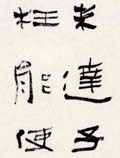 未達子
枉能使